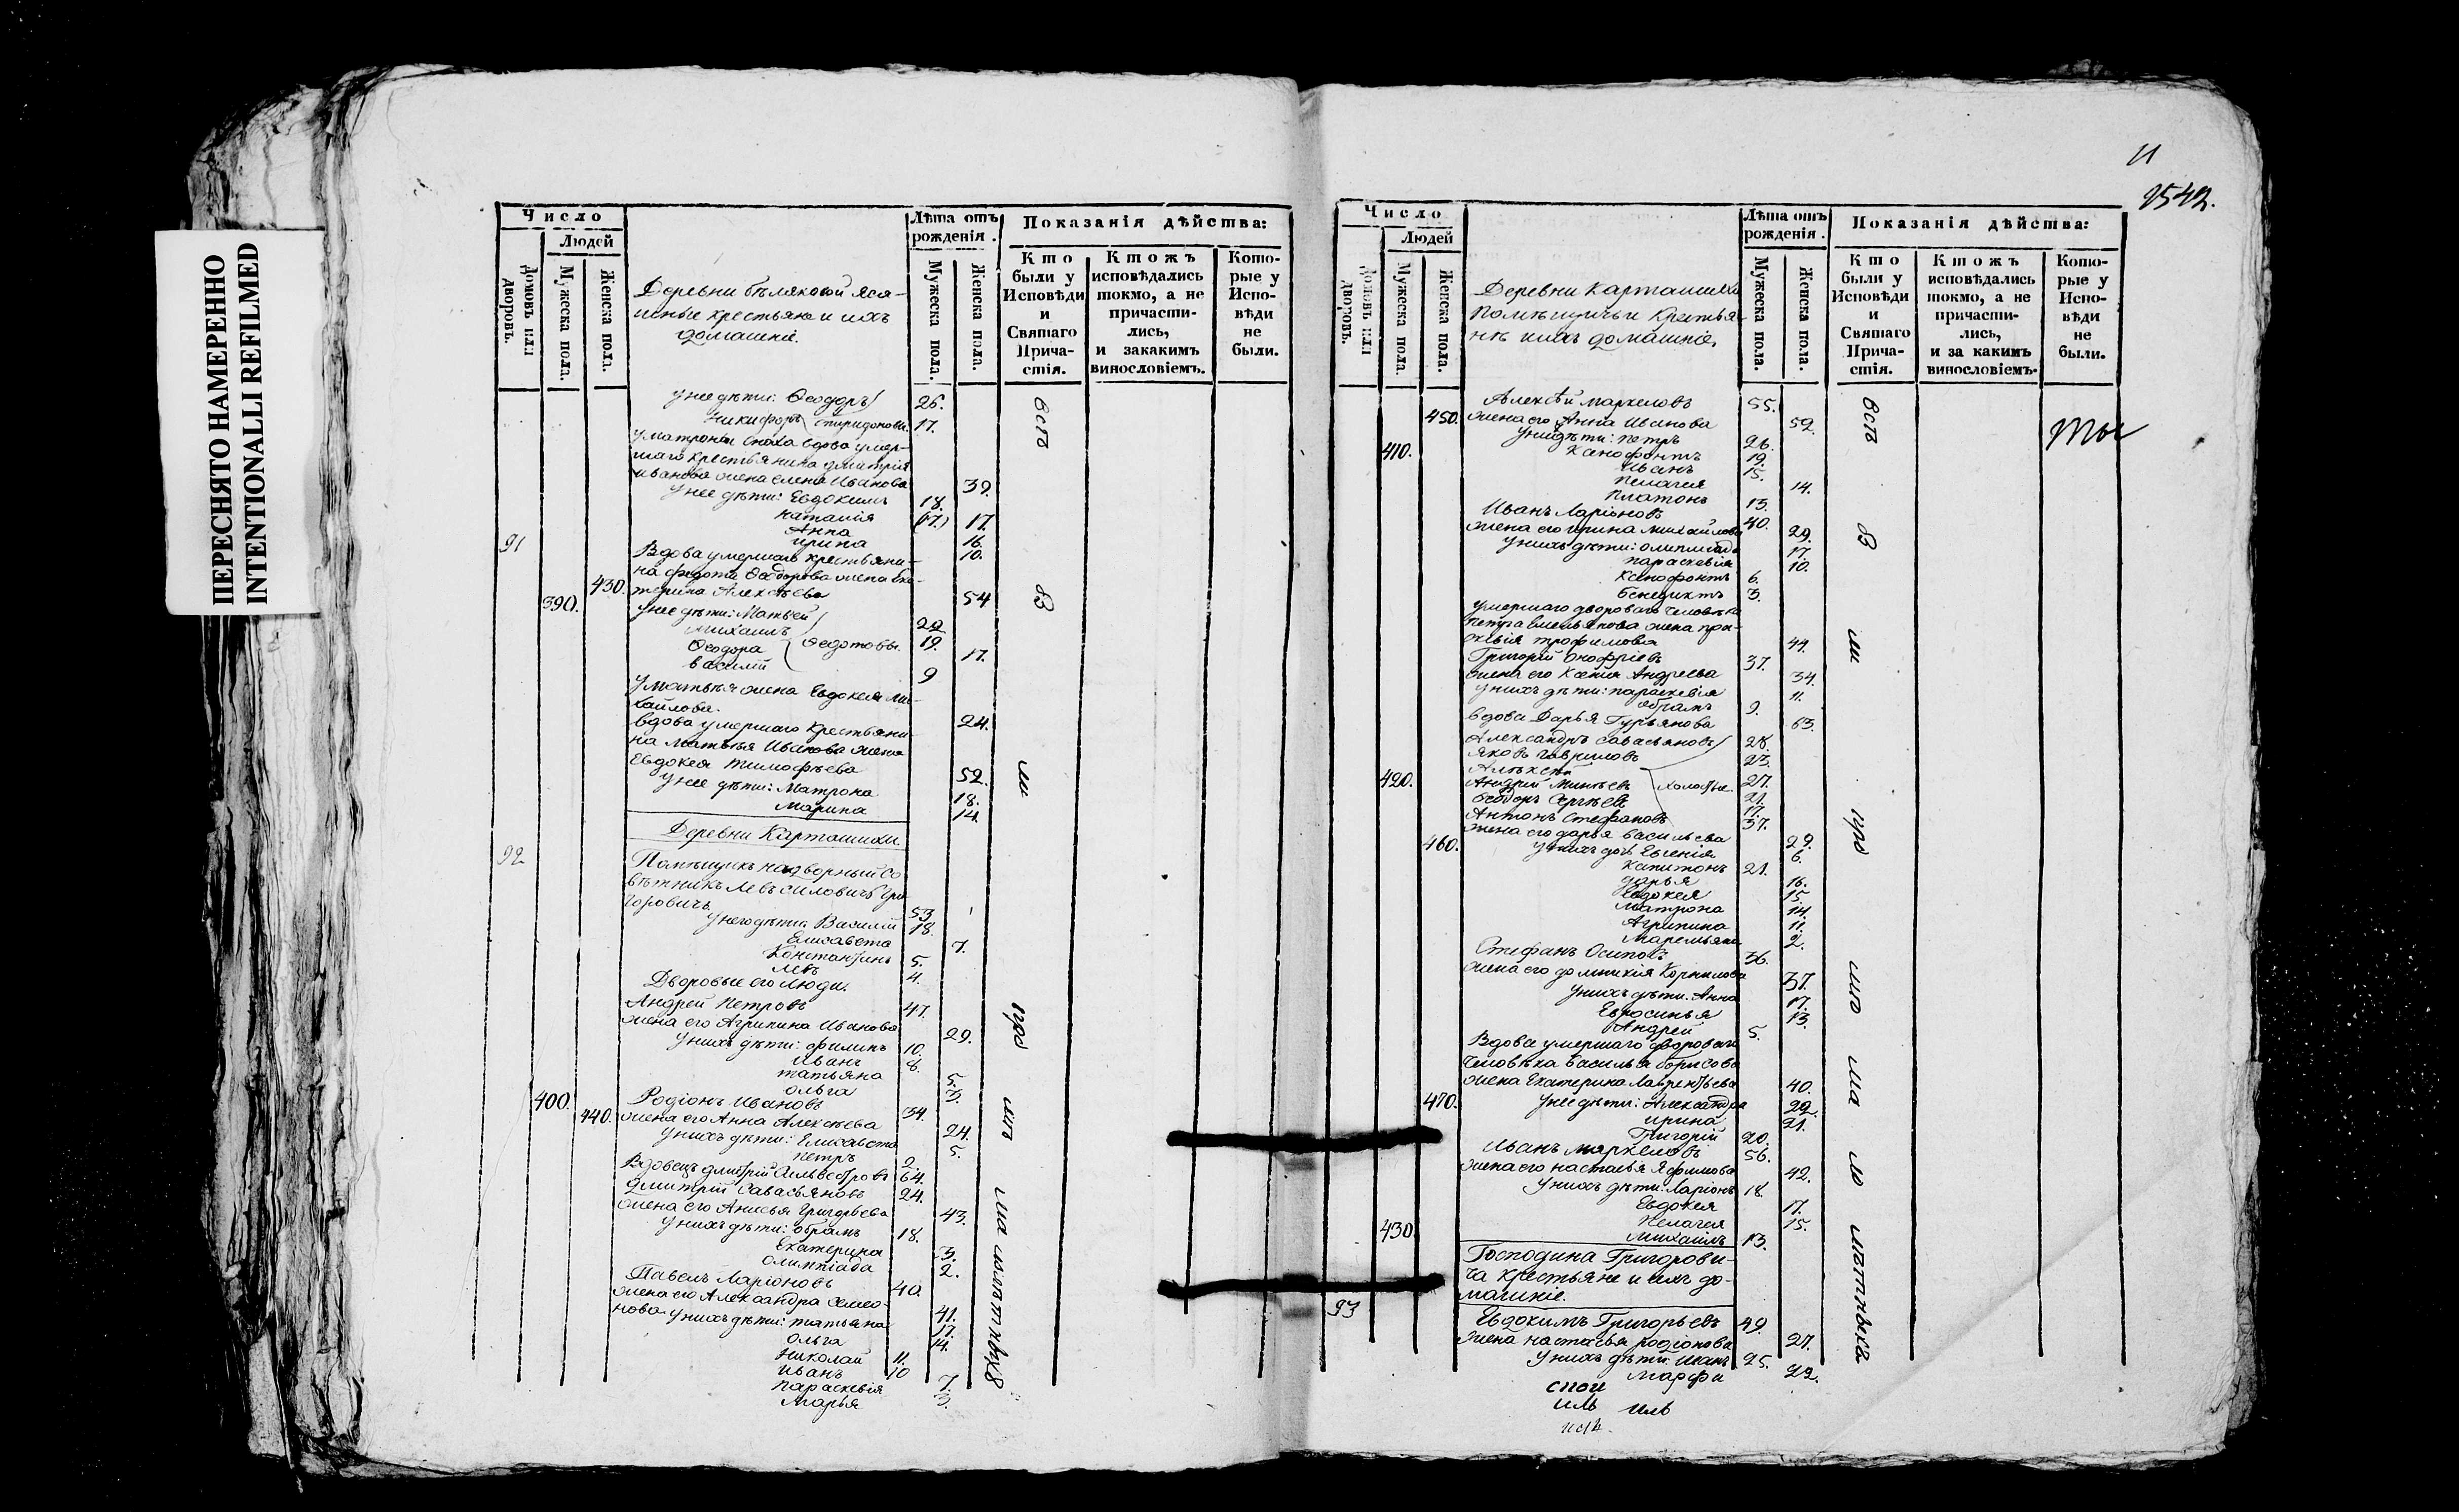 ПЕРЕСНЯТО НАМЕРЕННО
INTENTIONALLI REFILMED
Число
Людей
Домовъ или дворовъ.
Мужеска пола.
Женска пола.
Деревни бѣляковой яса-
шные крестьяне и ихъ
домашніе.
Лѣта отъ рожденія.
Мужеска пола.
Женска пола.
Показанія дѣйства:
Кто были у Исповѣди и Святаго Причастія.
Ктожъ исповѣдались токмо, а не причастились, и закакимъ винословіемъ.
Которые у Исповѣди не были.
у нее дѣти: Ѳеодоръ 26.
Никифоръ Спиридоновы 17.
у матроны сноха вдова умер-
шаго крестьянина дмитрія
иванова жена елена Иванова 39.
у нее дѣти: Евдокимъ 18.
наталія (17.) 17.
Анна 16.
ирина 10.
91 Вдова умершаго крестьяни-
на федота Ѳеодорова жена Ека-
430. терина Алексѣева 54
390. у нее дѣти: Матвей 22
михаилъ 19.
Ѳеодора Ѳедотовы. 17.
василій 9
у матвѣя жена Евдокея ми-
хайлова. 24.
вдова умершаго крестьяни-
на матвѣя Иванова жена
Евдокея тимофѣева 52.
у нее дѣти: Матрона 18.
Марина 14.
Деревни Карташихи
92 Помѣщикъ надворный со
вѣтникъ Левъ Силовичъ Гри
горовичъ 53
у него дѣти: Василій 18.
Елисавета 7.
Константинъ 5.
Левъ 4.
Дворовые его люди.
Андрей Петровъ 47.
жена его Агрипина Иванова 29.
у нихъ дѣти: филипъ 10.
Иванъ 8.
татьяна 5.
ольга 3.
400. Родіонъ Ивановъ 34.
440. жена его Анна Алексѣева 24.
у нихъ дѣти: Елисавета 5.
петръ 2.
Вдовецъ дмитрій Сильвестровъ 64.
дмитрій Савасьяновъ 24.
жена его Анисья Григорьева 43.
у нихъ дѣти: обрамъ 18.
Екатерина 3.
олимпіада 2.
Павелъ Ларіоновъ 40.
жена его Александра Семео-
нова 41.
у нихъ дѣти: татьяна 17.
ольга 14.
Николай 11.
иванъ 10
параскевія 7.
Марья 3.
11
2542.
Число
Людей
Домовъ или дворовъ.
Мужеска пола.
Женска пола.
Деревни Карташихи
Помѣщичьи Крестья-
не и ихъ домашніе.
Лѣта отъ рожденія.
Мужеска пола.
Женска пола.
Показанія дѣйства:
Кто были у Исповѣди и Святаго Причастія.
Ктожъ исповѣдались токмо, а не причастились, и за какимъ винословіемъ.
Которые у Исповѣди не были.
Алексѣй маркеловъ 55.
450. жена его Анна Иванова 52.
у нихъ дѣти: петръ 26.
410. Ксенофонтъ 19.
Иванъ 15.
Пелагея 14.
Платонъ 13.
Иванъ Ларіоновъ 40.
жена его ирина михайлова 29.
у нихъ дѣти: олимпіада 17.
параскевія 10.
Ксенофонтъ 6.
Бенедиктъ 3.
умершаго двороваго человѣка
петра Емельянова жена пра-
сковія трофимова 44.
Григорій Онофріевъ 37.
жена его Ксенія Андреева 34.
у нихъ дѣти: параскевія 11.
обрамъ 9.
вдова Дарья Гурьянова 63.
Александръ Савасьяновъ 28.
Яковъ Гавриловъ 23.
Алексѣй 27.
420. Андрей Минѣевъ холостые. 21.
Ѳеодоръ Сергѣевъ 17.
Антонъ Стефановъ 37.
жена его дарья васильева 29.
460. у нихъ дочь Евгенія 6.
Капитонъ 21.
дарья 16.
Евдокея 15.
Матрона 14.
Агрипина 11.
Маремьяна 2.
Стефанъ Осиповъ 36.
жена его домникія Корнилова 37.
у нихъ дѣти: Анна 17.
Евросинья 13.
Андрей 5.
Вдова умершаго двороваго
человѣка василья борисова
жена Екатерина Лаврентьева 40.
470. у нее дѣти: Александра 22.
ирина 21.
Григорій 20.
Иванъ маркеловъ 56.
жена его настасья Яфимова 42.
у нихъ дѣти: Ларіонъ 18.
Евдокея 17.
Пелагея 15.
430. Михаилъ 13.
Господина Григорови-
ча крестьяне и ихъ до-
машніе.
93 Евдокимъ Григорьевъ 49.
жена настасья родіонова 27.
у нихъ дѣти: Иванъ 25.
марфа 22.